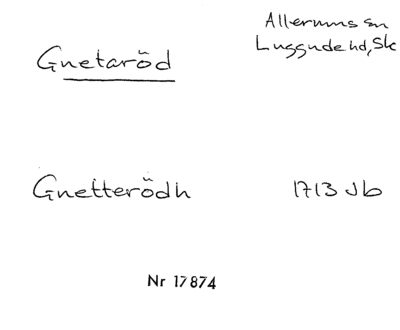 Gnetaröd
Allerums sn
Luggude hd, Sk
Gnetterödh
1713 Jb
Nr 17874